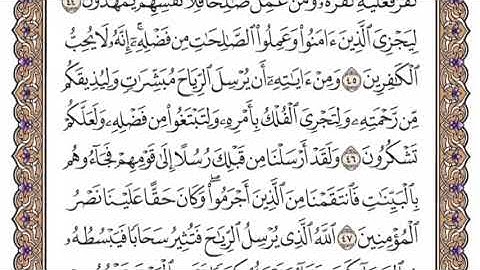 كَفَرَ فَعَلَيْهِ كُفْرُهُۥ وَمَنْ عَمِلَ صَٰلِحًا فَلِأَنفُسِهِمْ يَمْهَدُونَ ٤٤
لِيَجْزِىَ ٱلَّذِينَ ءَامَنُوا۟ وَعَمِلُوا۟ ٱلصَّٰلِحَٰتِ مِن فَضْلِهِۦٓ ۚ إِنَّهُۥ لَا يُحِبُّ
ٱلْكَٰفِرِينَ ٤٥ وَمِنْ ءَايَٰتِهِۦٓ أَن يُرْسِلَ ٱلرِّيَاحَ مُبَشِّرَٰتٍ وَلِيُذِيقَكُم
مِّن رَّحْمَتِهِۦ وَلِتَجْرِىَ ٱلْفُلْكُ بِأَمْرِهِۦ وَلِتَبْتَغُوا۟ مِن فَضْلِهِۦ وَلَعَلَّكُمْ
تَشْكُرُونَ ٤٦ وَلَقَدْ أَرْسَلْنَا مِن قَبْلِكَ رُسُلًا إِلَىٰ قَوْمِهِمْ فَجَآءُوهُم
بِٱلْبَيِّنَٰتِ فَٱنتَقَمْنَا مِنَ ٱلَّذِينَ أَجْرَمُوا۟ ۖ وَكَانَ حَقًّا عَلَيْنَا نَصْرُ
ٱلْمُؤْمِنِينَ ٤٧ ٱللَّهُ ٱلَّذِى يُرْسِلُ ٱلرِّيَٰحَ فَتُثِيرُ سَحَابًا فَيَبْسُطُهُۥ